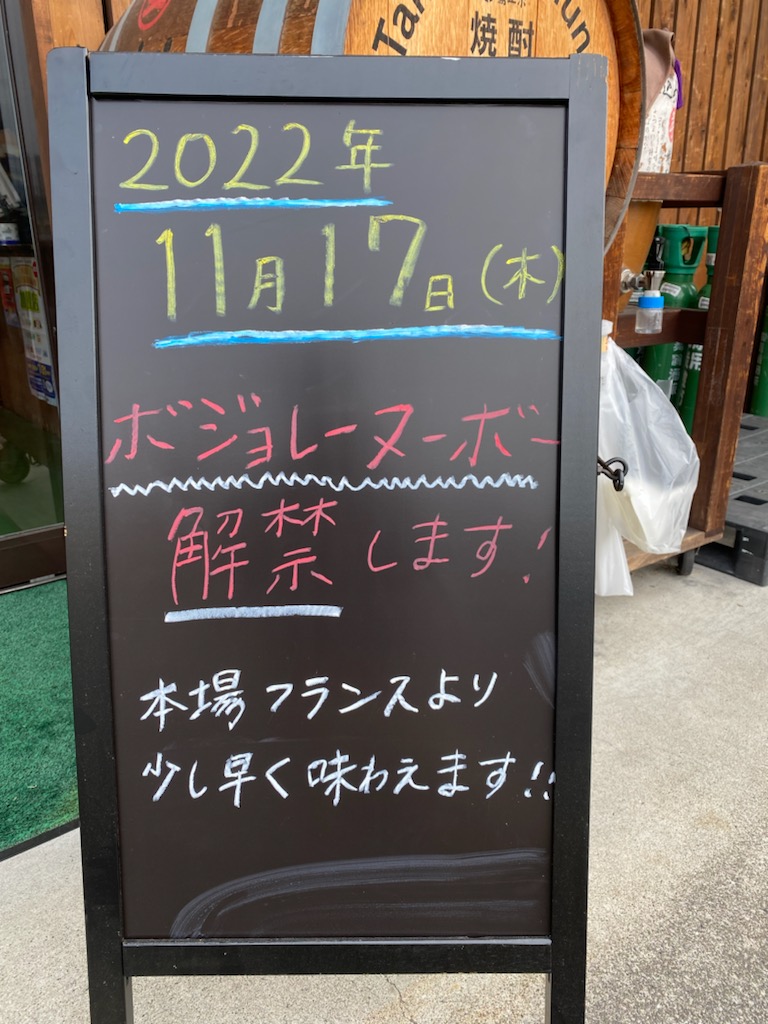 焼酎
2022年
11月17日(木)
ボジョレーヌーボー
解禁します!
本場フランスより
少し早く味わえます!!